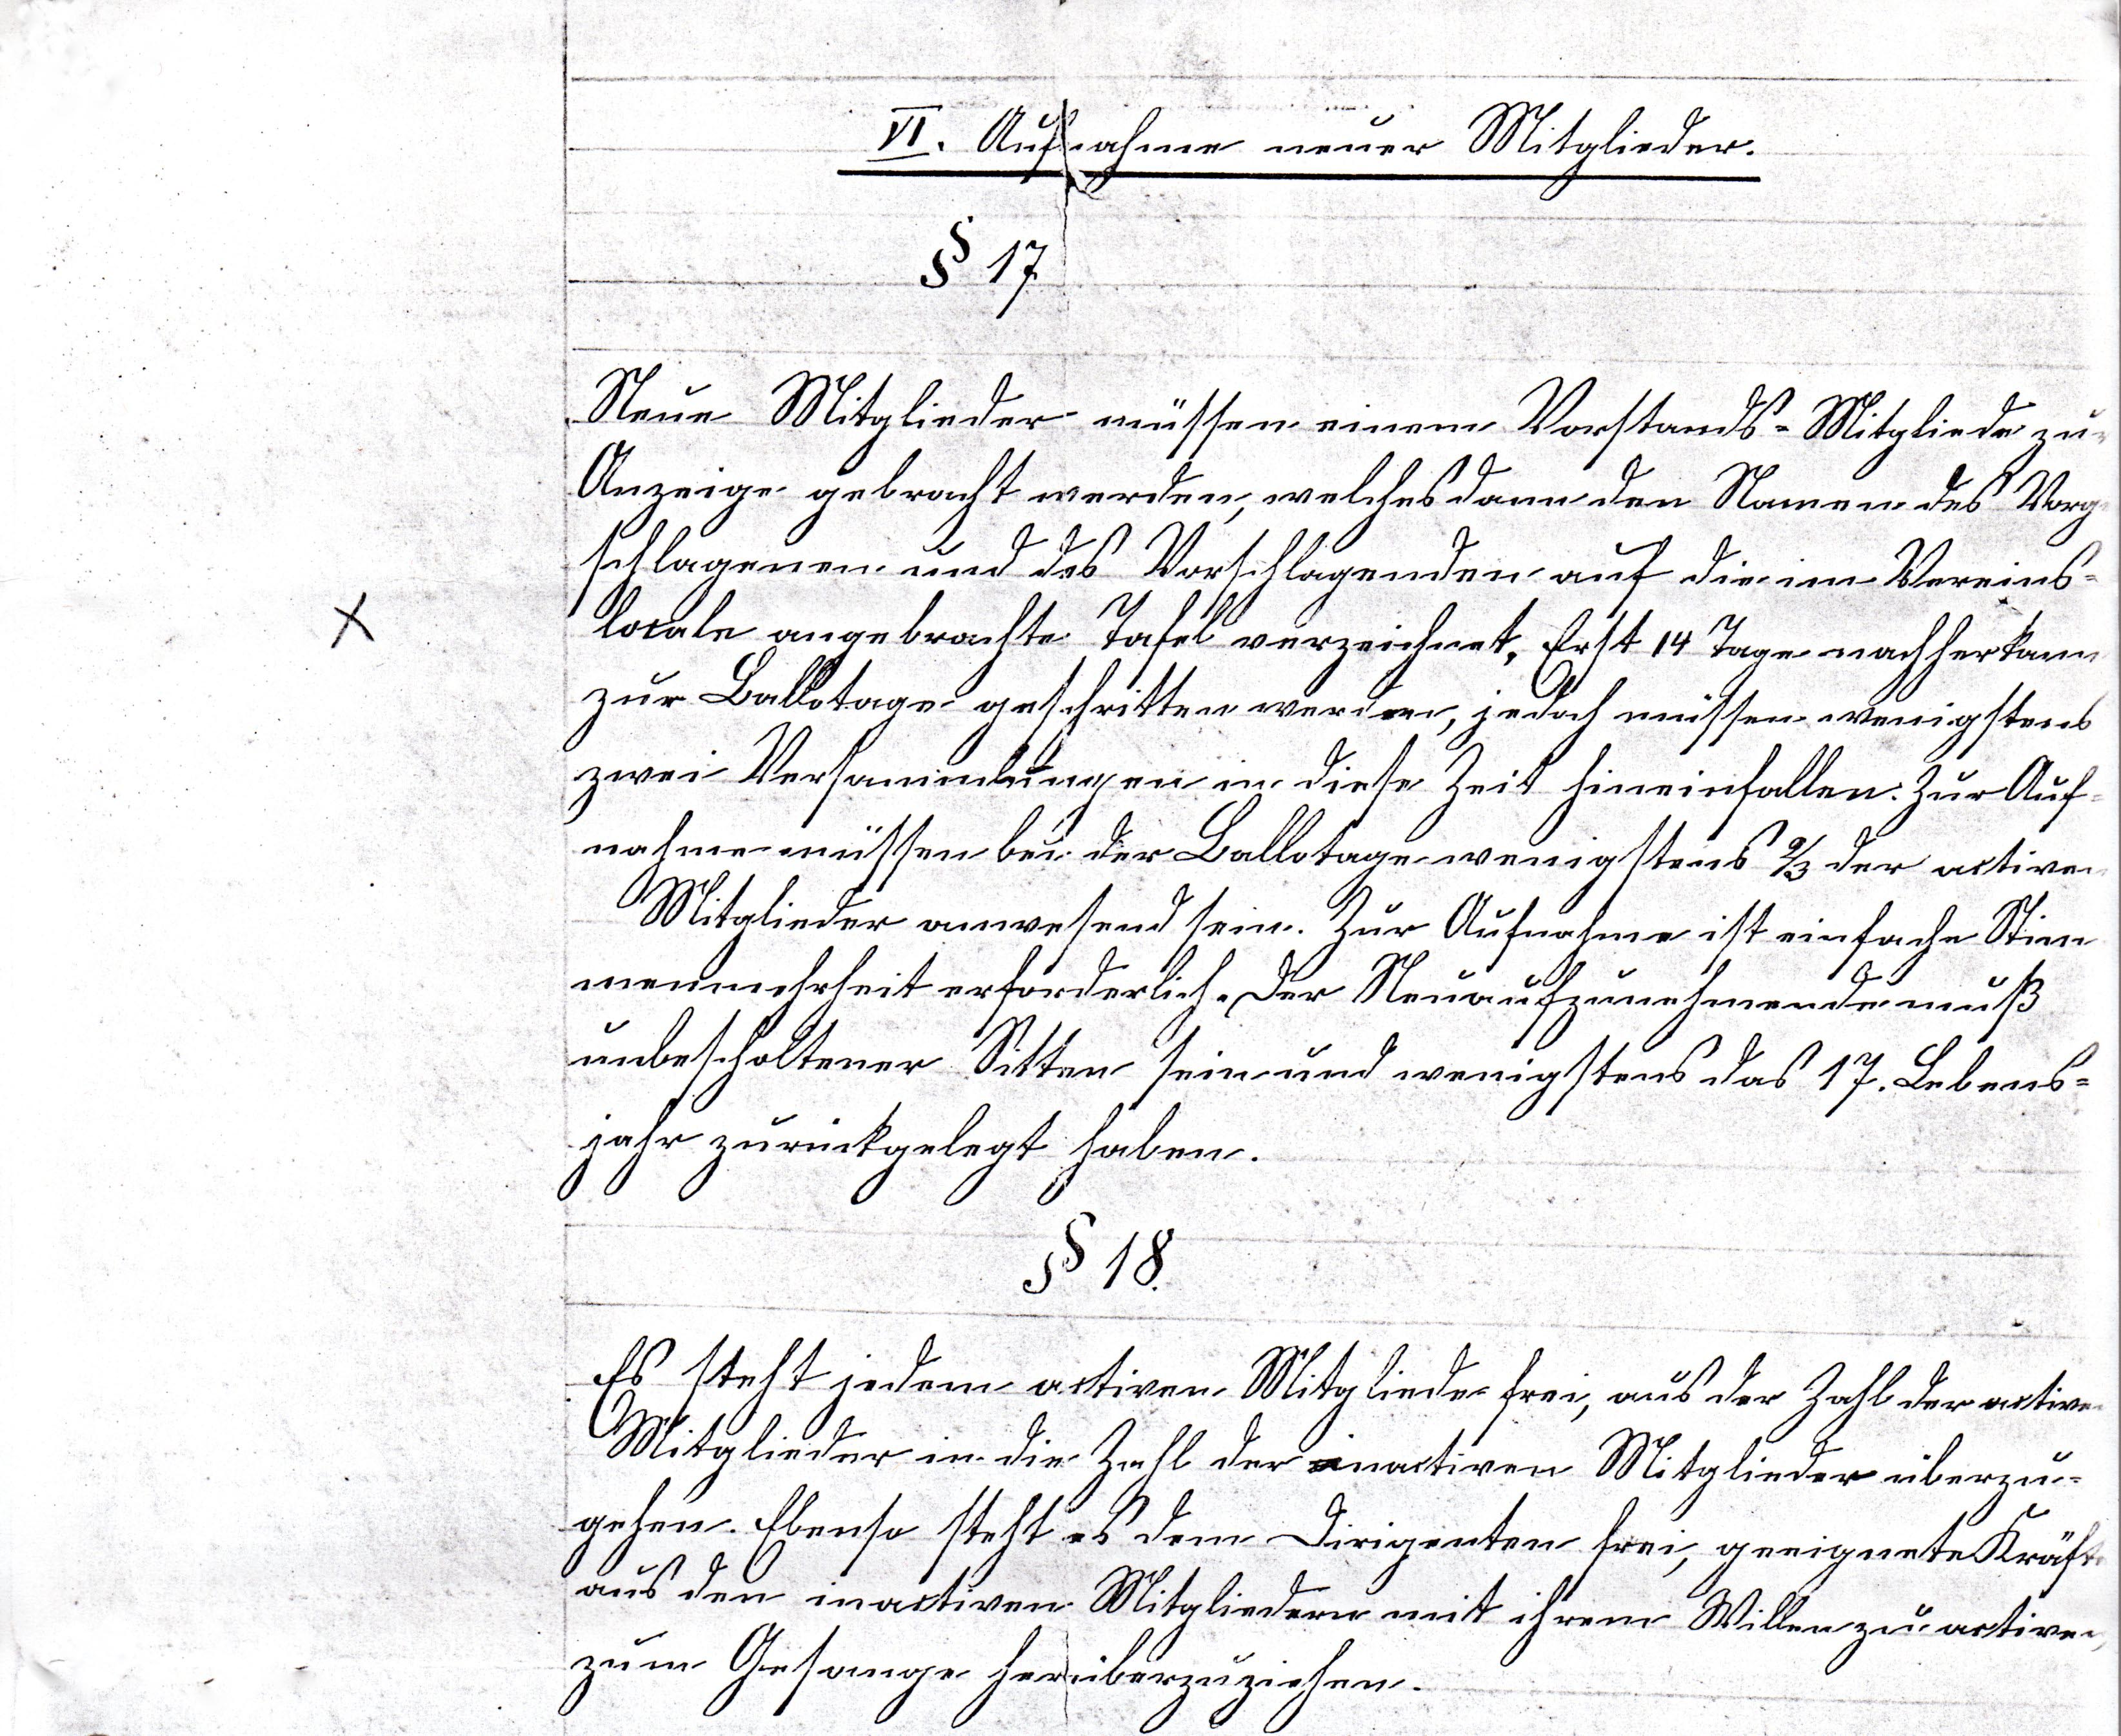 VI. Aufnahme neuer Mitglieder.
§ 17
Neue Mitglieder müssen einem Vorstands-Mitgliede zur
Anzeige gebracht werden, welches dann den Namen des Vorge
schlagenen und des Vorschlagenden auf die im Vereins-
locale angebrachte Tafel verzeichnet. Erst 14 Tage nachher kann
zur Ballotage geschritten werden, jedoch müssen wenigstens
zwei Versammlungen in diese Zeit hineinfallen. Zur Auf-
nahme müssen bei der Ballotage wenigstens 2/3 der activen
Mitglieder anwesend sein. Zur Aufnahme ist einfache Stim
menmehrheit erforderlich. Der Neuaufzunehmende muß
unbescholtener Sitten sein und wenigstens das 17. Lebens-
jahr zurückgelegt haben.
X
§ 18.
Es steht jedem activen Mitgliede frei, aus der Zahl der activen
Mitglieder in die Zahl der inactiven Mitglieder überzu-
gehen. Ebenso steht es dem Dirigenten frei, geeignete Kräfte
aus den inactiven Mitgliedern mit ihrem Willen zu activen,
zum Gesange herüberzuziehen.